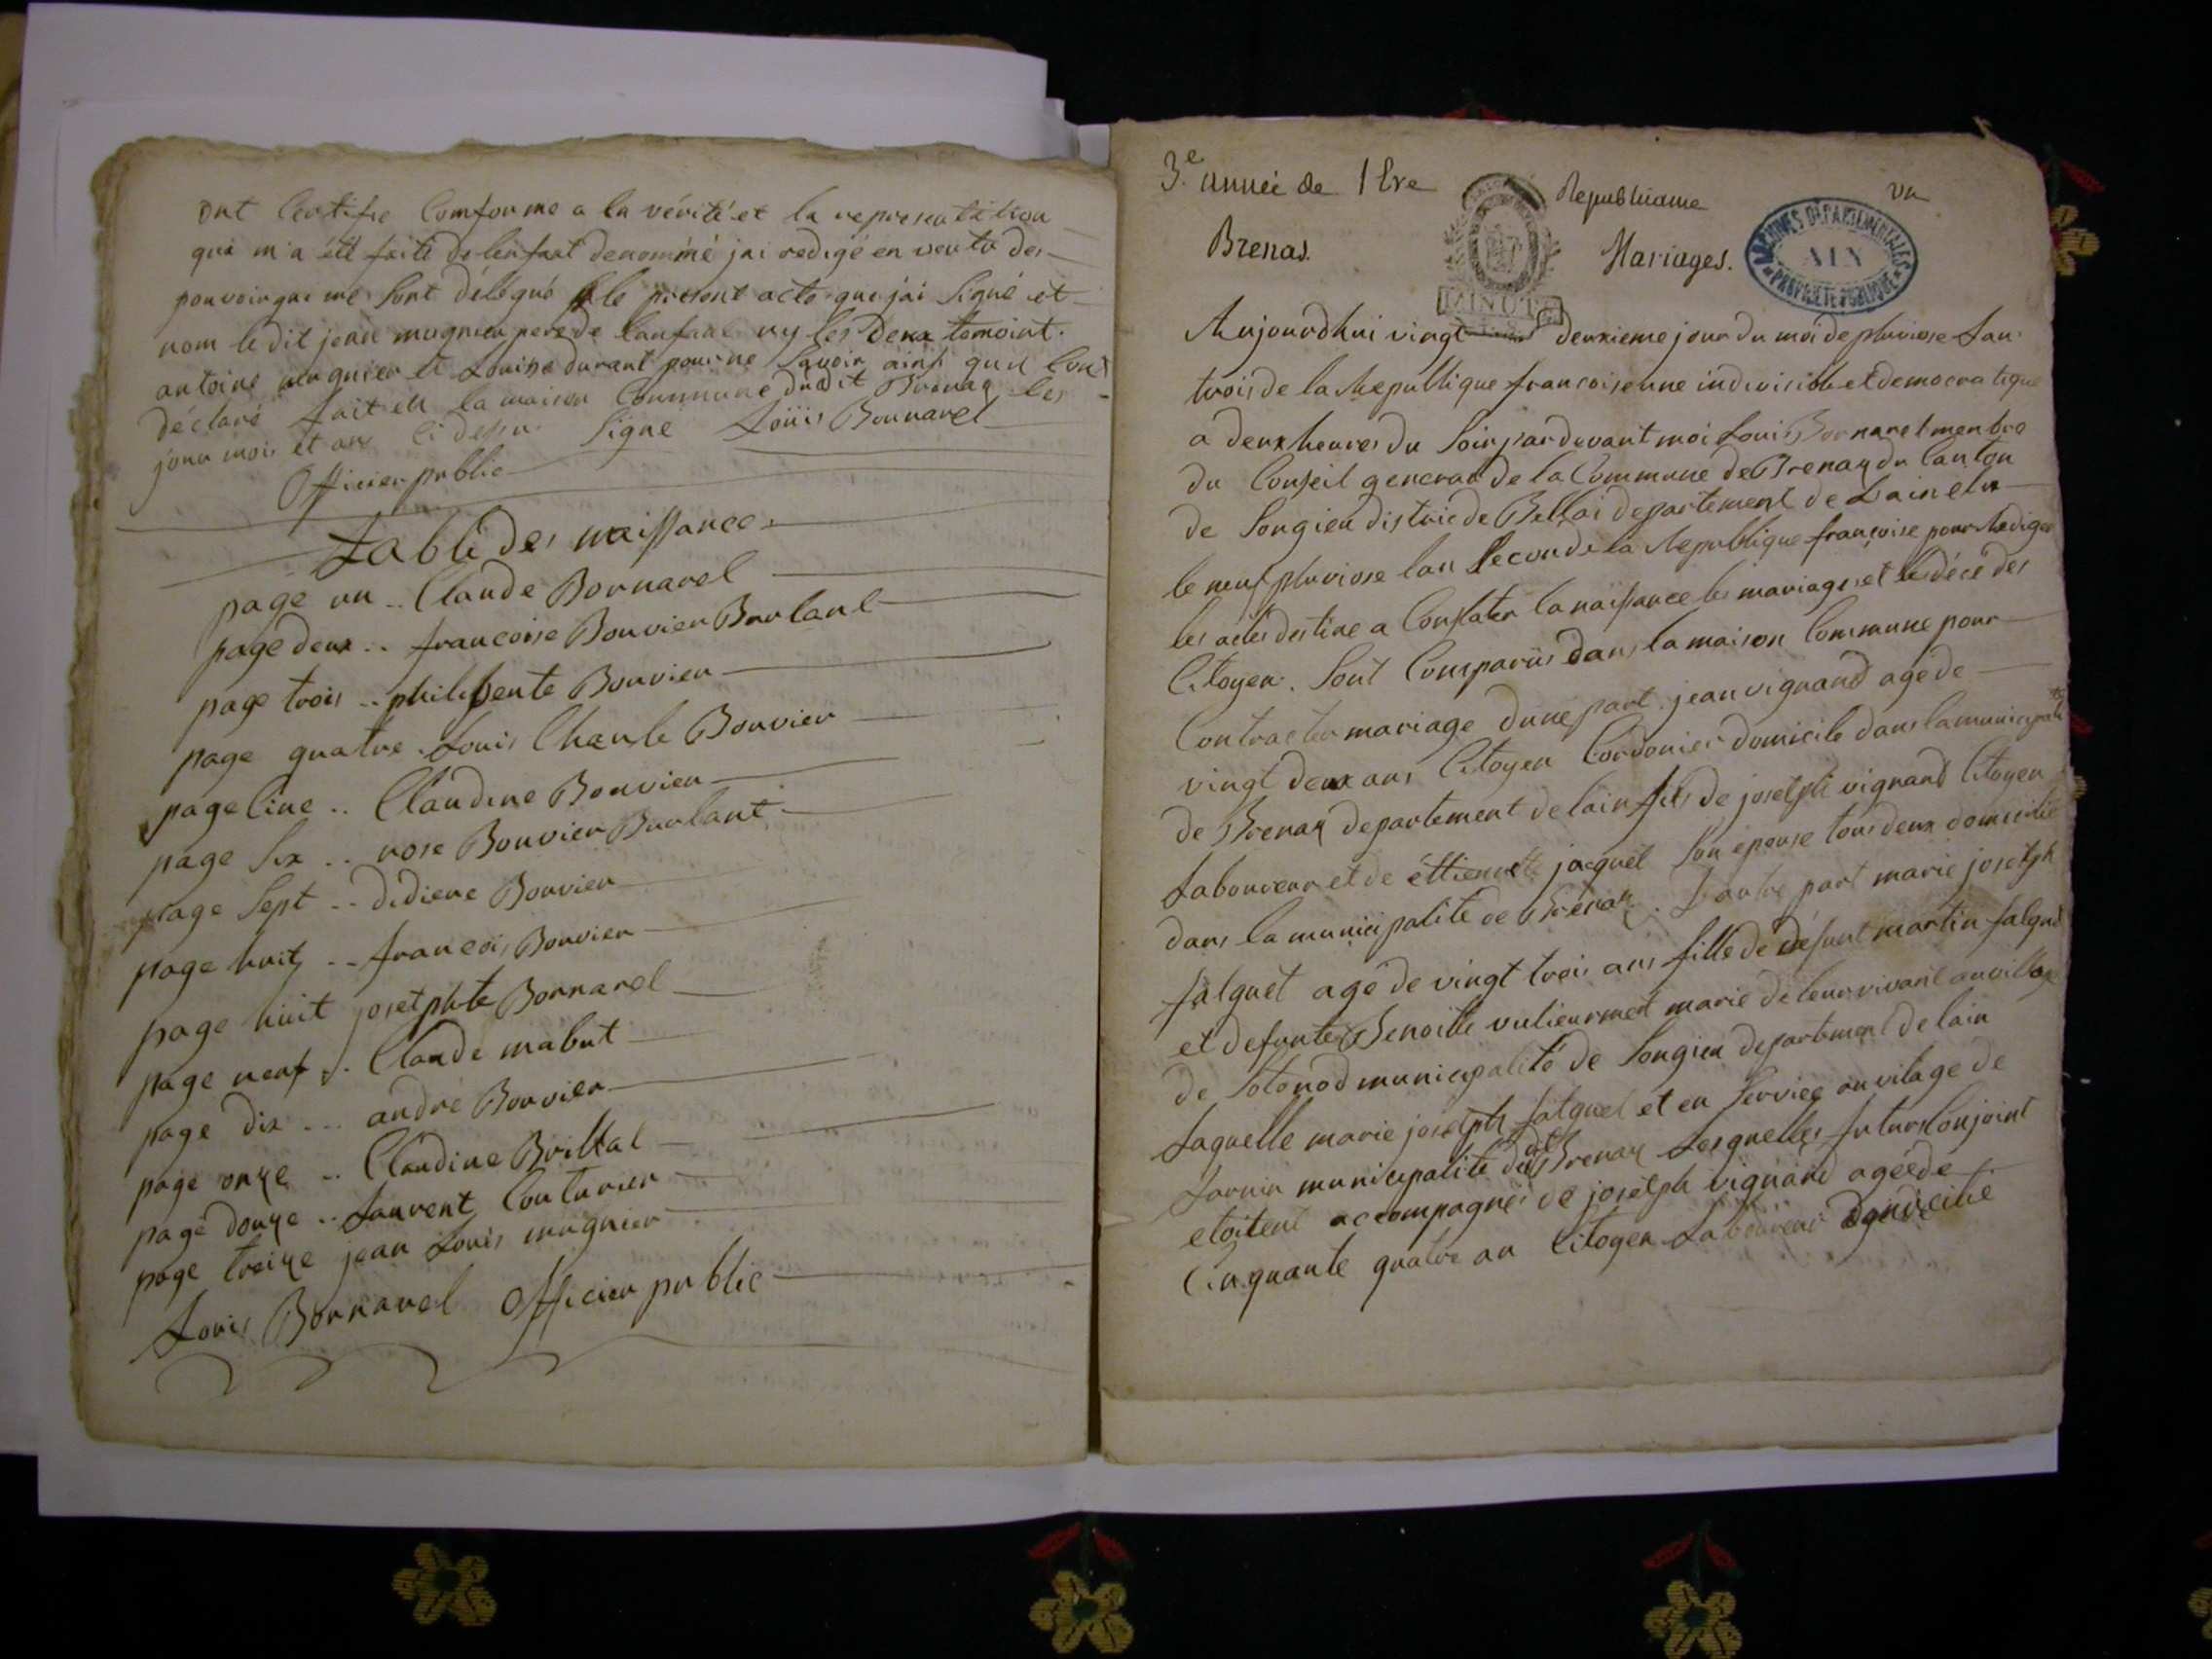 ont Certifie Comforme a la vérité et la representation
qui m'a été faite de lenfant denommé jai redigé en vertu des
pouvoir qui me sont délégué le present acte que jai Signé et
nom le dit jean mugnier pere de lanfant ny les deux temoint.
antoine mugnier et Louise durant pour ne Savoir ainsi quil lont
déclaré fait en la maison Commune dudit Brenaz les
jour mois et an ci dessu Signe Loüis Bornarel
Officier public
Table des naissance
page un .. Claude Bornarel
page deux .. francoise Bouvier Burlant
page trois .. philiberte Bouvier
page quatre . Louis Charle Bouvier
page Cinc .. Claudine Bouvier
page Six .. rose Bouvier Burlant
page Sept .. didiere Bouvier
page huit .. francois Bouvier
page huit josetphte Bornarel
page neuf .. Claude mabut
page dix ... andré Bouvier
page onze .. Claudine Brillat
page douze .. Laurent Couturier
page treize jean Louis mugnier
Louis Bornarel Officier public
3.e année de l'Ere Republicaine un
Brenas. Mariages.
ARCHIVES DÉPARTEMENTALES
AIN
PROPRIÉTÉ PUBLIQUE
MINUTE
Aujourdhui vingt deuxieme jour du moi de pluviose Lan
trois de la Republique francoise une indivisible et democratique
a deux heures du Soir par devant moi Louis Bornarel menbre
du Conseil general de la Commune de Brenaz du Canton
de Songieu distric de Bellai departement de Lain elu
le neuf pluviose lan Second de la Republique françoise pour Rediger
les actes destine a Constater la naissance les mariages et les déce des
Citoyen. Sont Comparüs dans la maison Commune pour
Contracter mariage dune part jean vignand age de
vingt deux ans Citoyen Cordonier domicile dans la municipalité
de Brenaz departement de lain fils de joselph vignand Citoyen
Laboureur et de éttiennette jacquet Son epouse tous deux domicilié
dans la municipalite de Brénaz. Lautre part marie joselph
falguet agé de vingt trois ans fille de défunt martin falguet
et defunte Benoitte vulieurmet marie de leur vivant au village
de Sotonod municipalité de Songieu departement de lain
Laquelle marie joselph falguet et en Service au vilage de
municipalité dudit Brenaz Lesquelles futurs Conjoint
etoitent accompagnés de joselph vignand ageédé
Cinquante quatre an Citoyen Laboureur domicilie